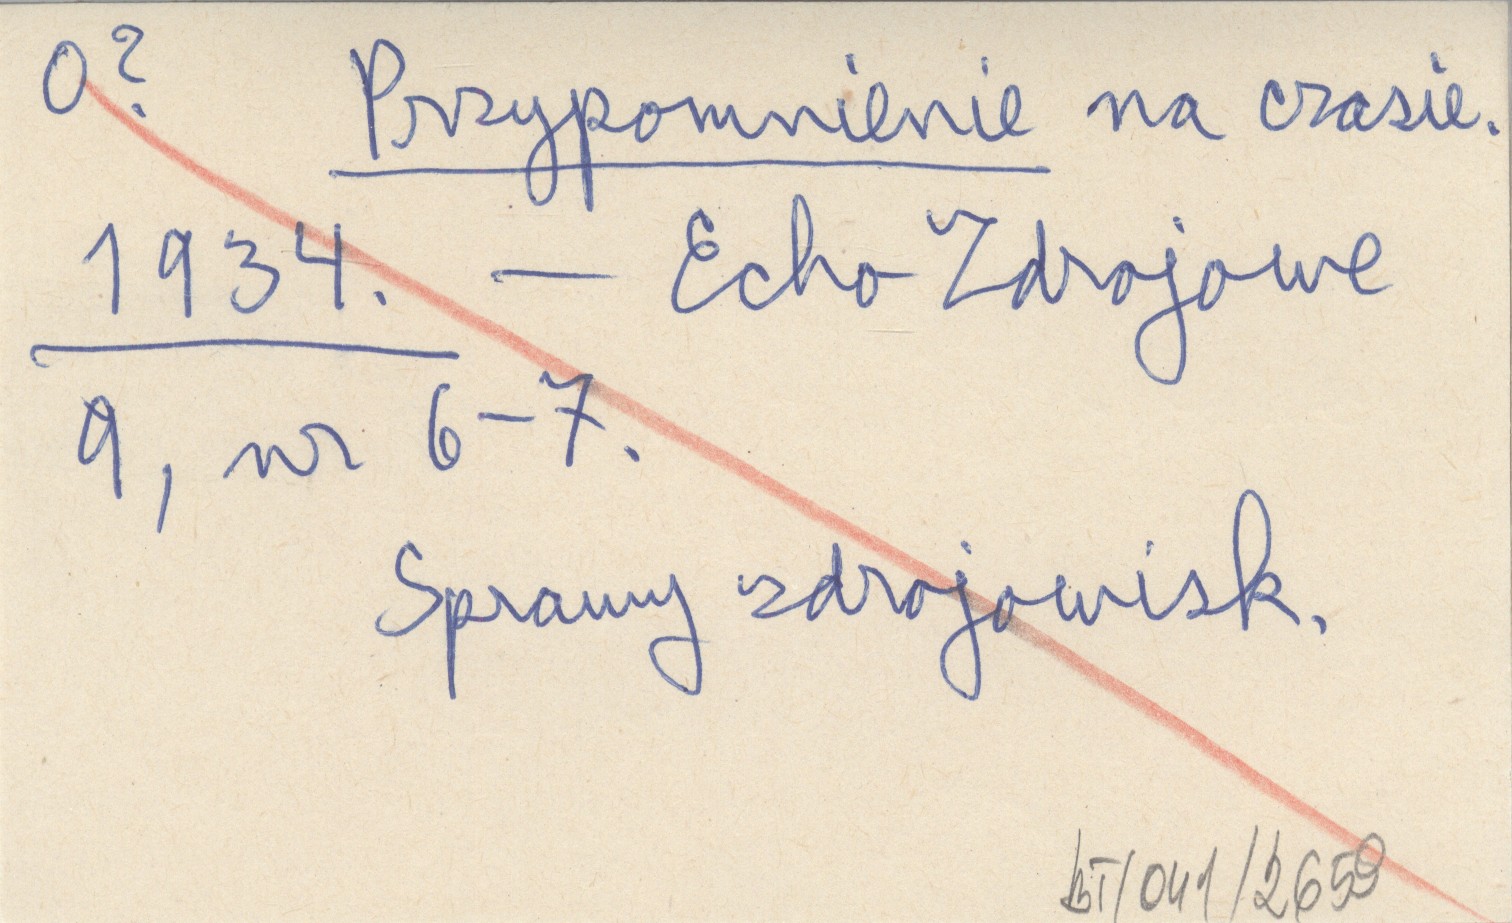 O? Przypomnienie na czasie.
1934. — Echo Zdrojowe
9, nr 6-7.
Sprawy zdrojowisk.
BT/041/2659